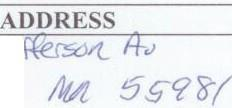 ADDRESS
fferson Av
MN 55981